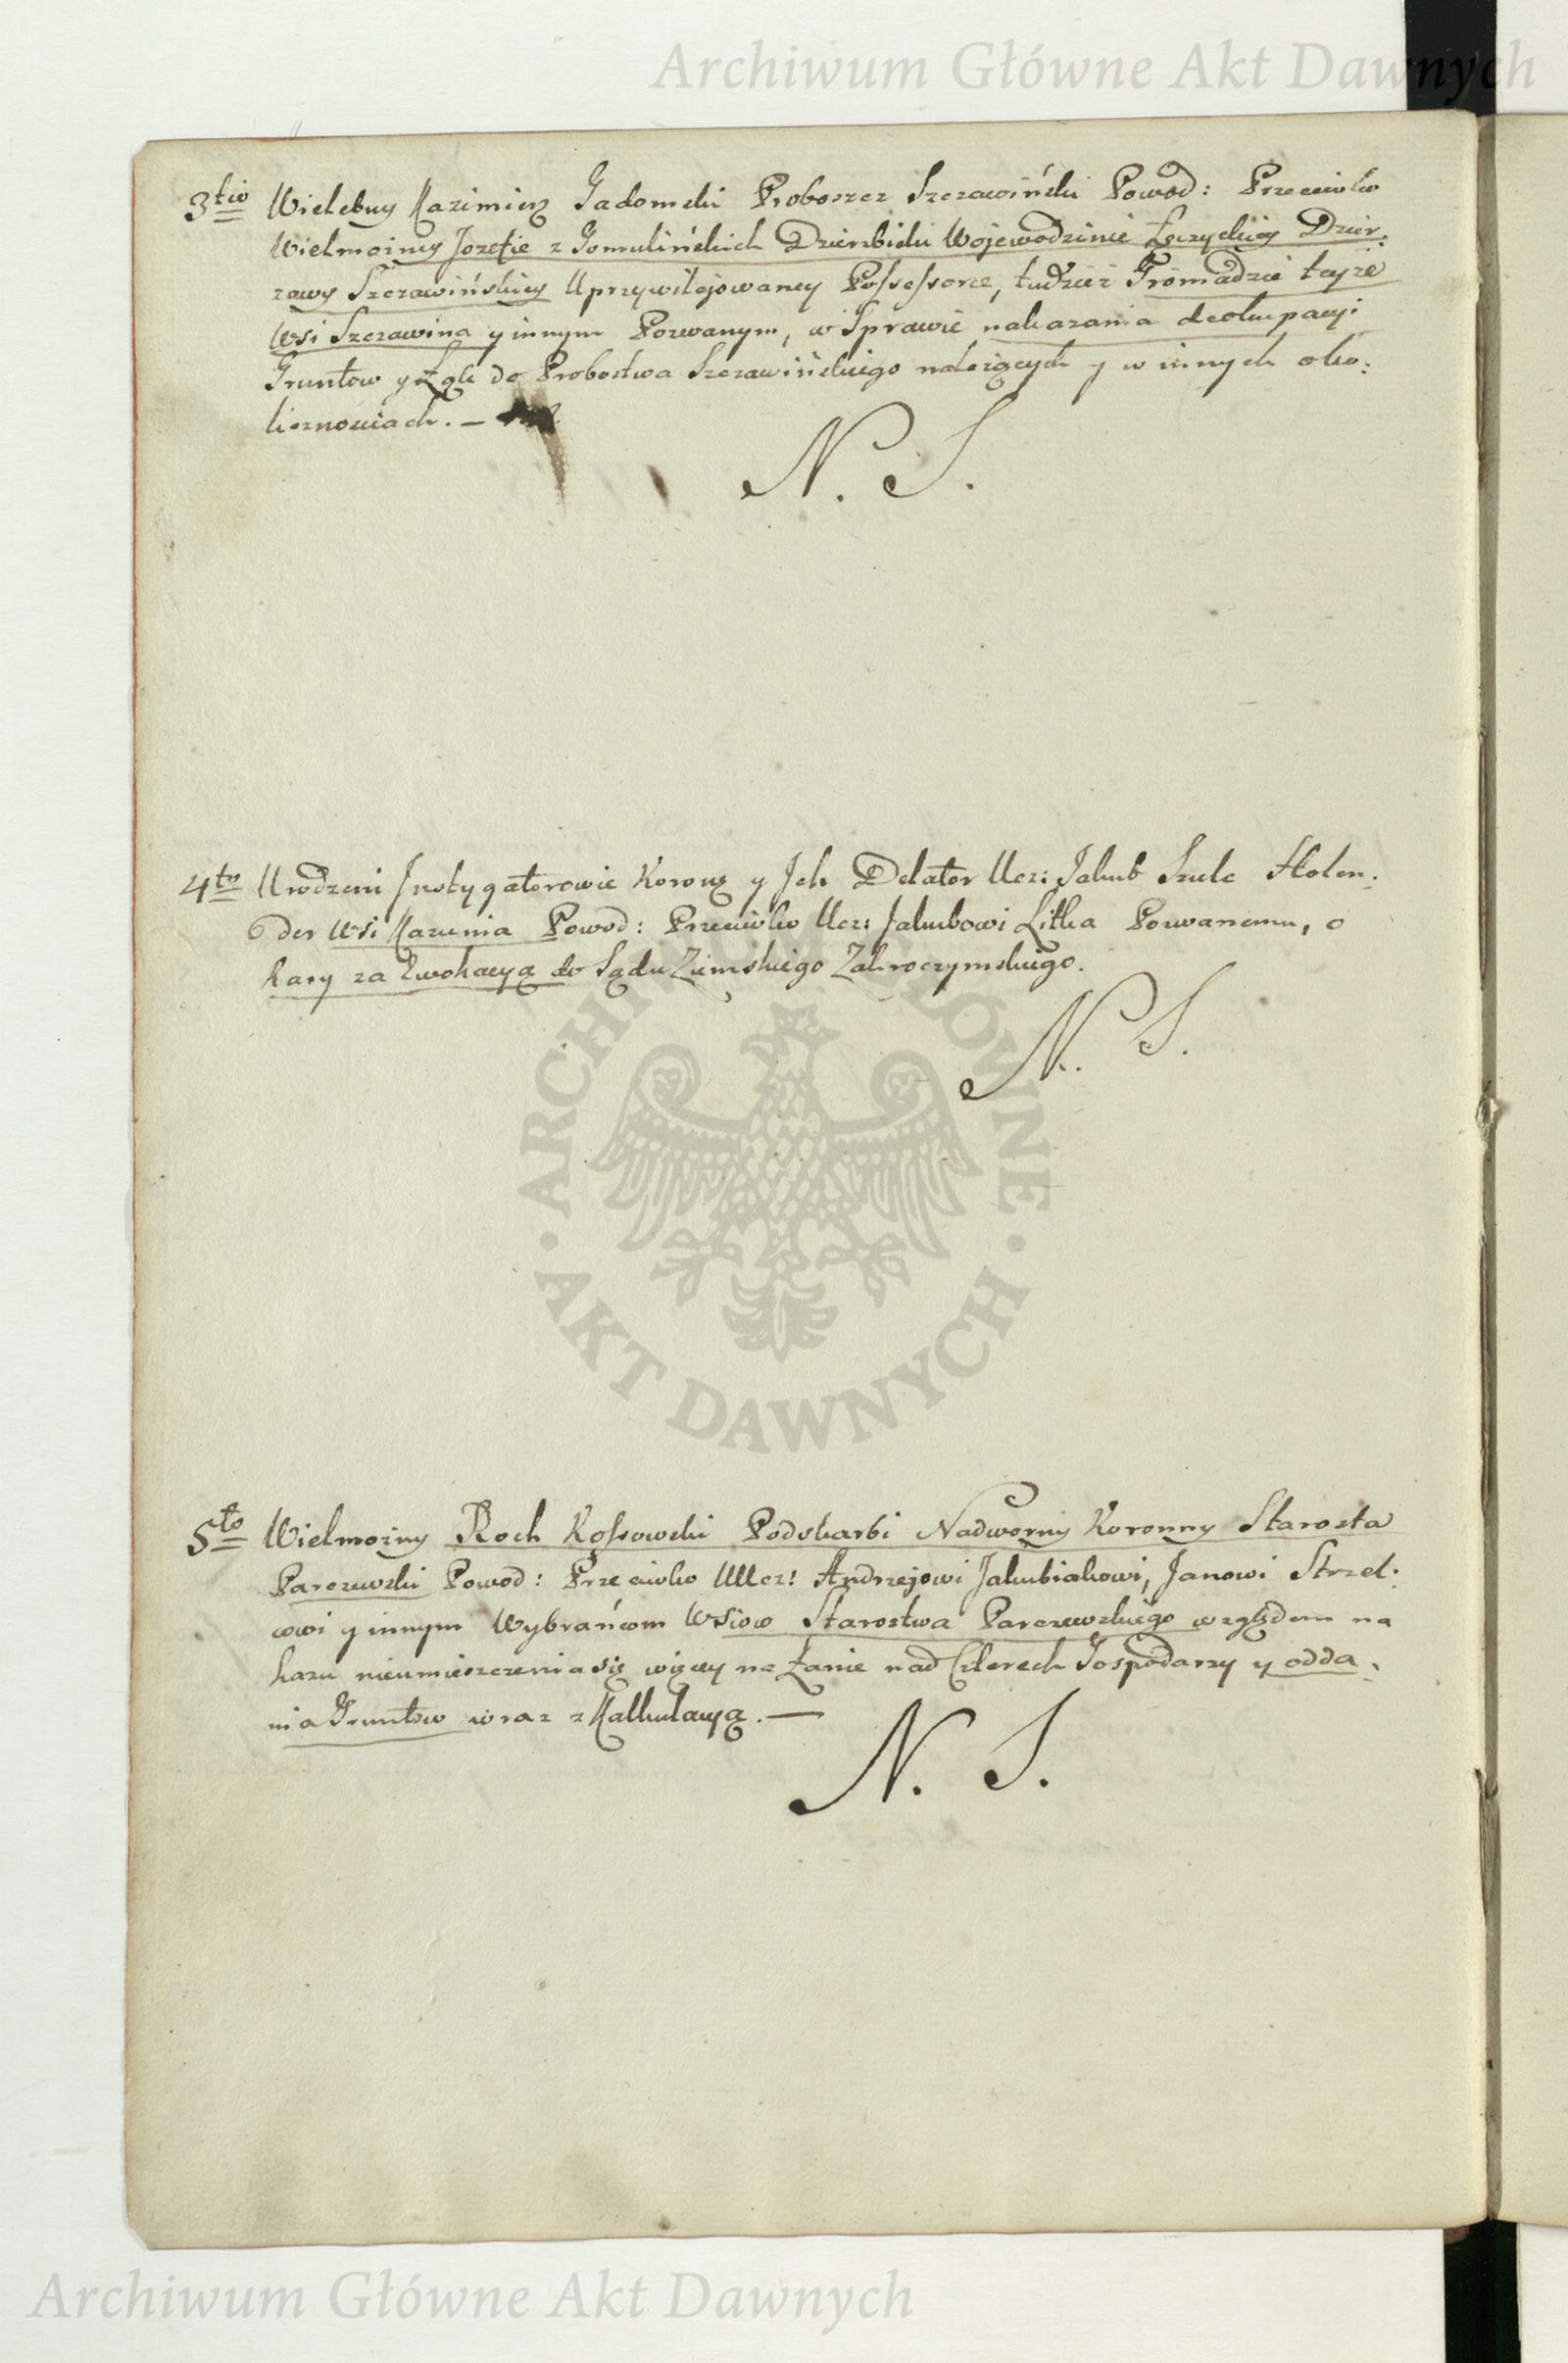 Archiwum Główne Akt Dawnych
3tio Wielebny Kazimierz Gadomski Proboszcz Szczawiński Powod: Przeciwko
Wielmożney Jozefie z Gomulińskich Dzierzbicki Wojewodzinie Łęczyckiey Dzier:
zawy Szczawińskiey Uprzywilejowaney Possessorce, tudzież Gromadzie teyże
Wsi Szczawina y innym Pozwanym, w Sprawie nakazania deokupacyi
Gruntow y Łąk do Probostwa Szczawińskiego należących y w innych oko:
licznościach. —
N. S.
4to Urodzeni Instygatorowie Koronę y Jch Delator Ucz: Jakub Szulc Holen:
der Wsi Kazunia Powod: Przeciwko Ucz: Jakubowi Litka Pozwanemu, o
kary za Ewokacyą do Sądu Ziemskiego Zakroczymskiego.
N. S.
ARCHIWUM GŁÓWNE · AKT DAWNYCH ·
5to Wielmożny Roch Kossowski Podskarbi Nadworny Koronny Starosta
Parczewski Powod: Przeciwko UUcz: Andrzejowi Jakubiakowi, Janowi Strzel:
cowi y innym Wybrańcom Wsiow Starostwa Parczewskiego względem na
kazu nieumieszczenia się więcey na Łanie nad Czterech Gospodarzy y odda:
nia Gruntow wraz z Kalkulacyą. —
N. S.
Archiwum Główne Akt Dawnych